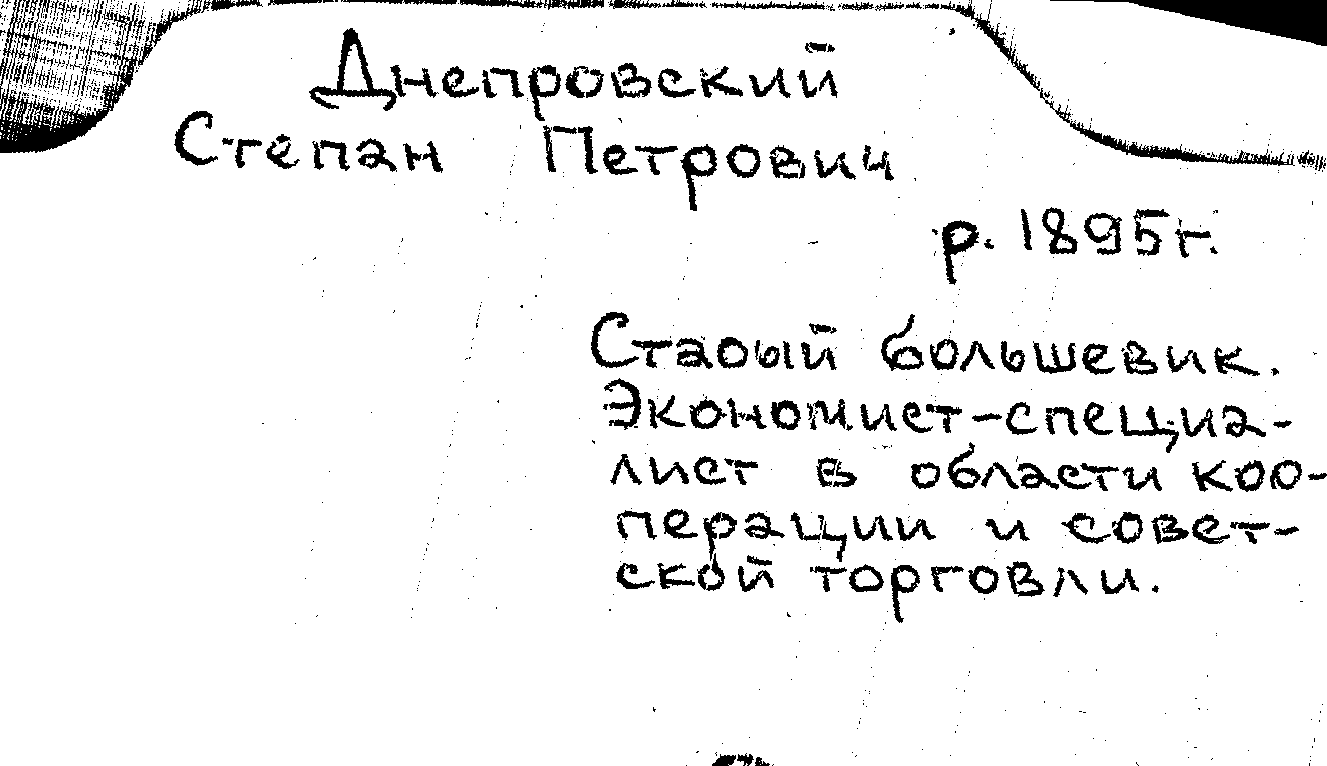 Днепровский
Степан Петрович
р. 1895г.
Старый большевик.
Экономист-специа-
лист в области коо-
перации и совет-
ской торговли.